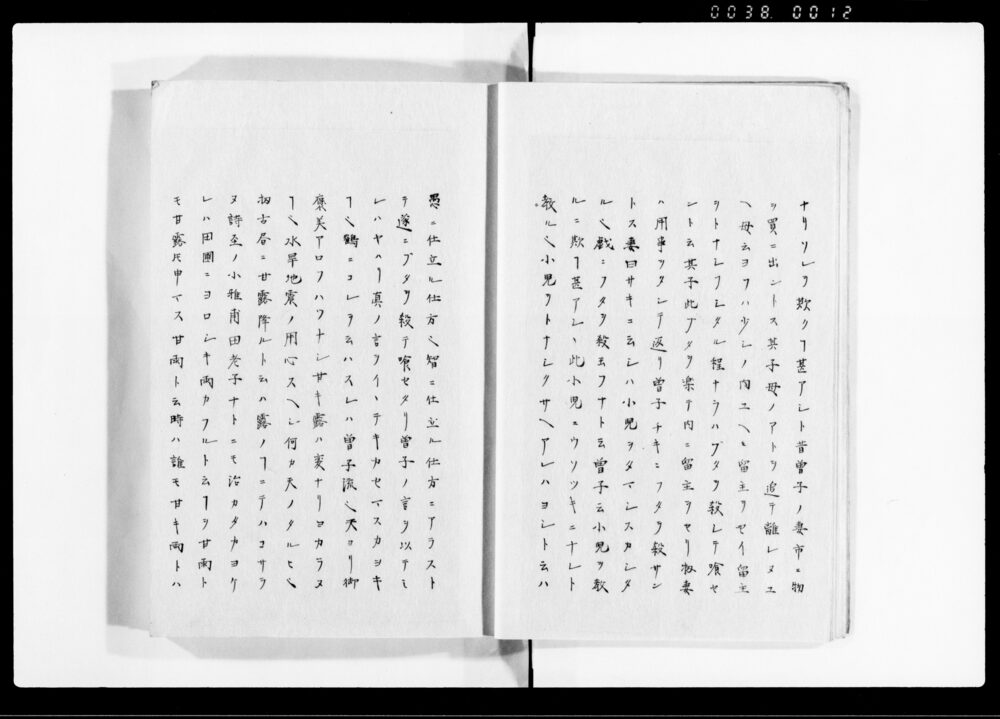 0038 0012
ナリソレヲ欺クヿ甚アシト昔曽子ノ妻市ニ物
ヲ買ニ出ントス其子母ノアトヲ追テ離レヌユ
ヘ母云ヨフハ少シノ内ユヘニ留主ヲセイ留主
ヲトナレフシタル程ナラハブタヲ殺レテ喰セ
ント云其子此ブタヲ楽テ内ニ留主ヲセリ扨妻
ハ用事ヲタシテ返リ曽子チキニブタヲ殺サン
トス妻曰サキニ云シハ小児ヲタマシスカシタ
ル也戯ニブタヲ殺玉フナト云曽子云小児ヲ教
ルニ欺ヿ甚アシヽ此小児ニウソツキニナレト
教ル也小児ヲトナシクサヘアレハヨシト云ハ
愚ニ仕立ル仕方也智ニ仕立ル仕方ニアラスト
テ遂ニブタヲ殺テ喰セタリ曽子ノ言ヲ以テミ
レハヤハリ真ノ言ヲイヽテキカセマスカヨキ
ヿ也鶴ニコレヲ云ハスレハ曽子流也天ヨリ御
褒美アロフハツナシ甘キ露ハ変ナリヨカラヌ
ヿ也水旱地震ノ用心スヘシ何カ天ノタルヒ也
扨古昔ニ甘露降ルト云ハ露ノヿニテハコサラ
ヌ詩至ノ小雅甫田老子ナトニモ治カタカヨケ
レハ田圃ニヨロシキ雨カフルト云ヿヲ甘雨ト
モ甘露氏申マス甘雨ト云時ハ誰モ甘キ雨トハ